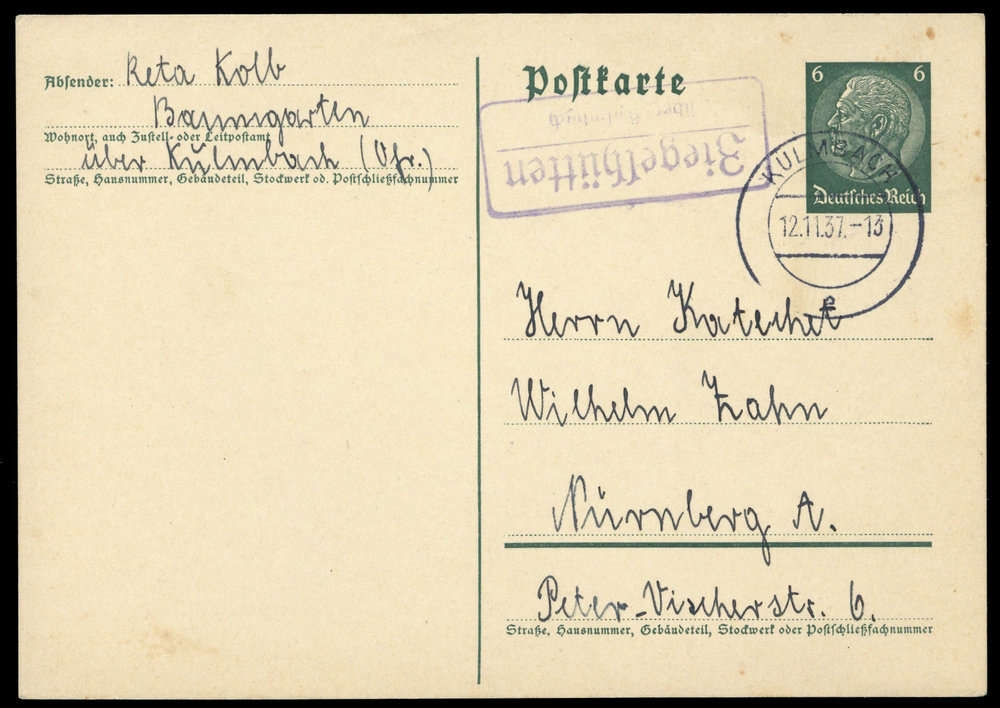 Absender: Reta Kolb
Baumgarten
Wohnort, auch Zustell- oder Leitpostamt
über Kulmbach (Ofr.)
Straße, Hausnummer, Gebäudeteil, Stockwerk od. Postschließfachnummer
Postkarte
Ziegelhütten
über Kulmbach
6 6
Deutsches Reich
KULMBACH
12.11.37.-13
Herrn Katechet
Wilhelm Zahn
Nürnberg A.
Peter-Vischerstr. 6.
Straße, Hausnummer, Gebäudeteil, Stockwerk oder Postschließfachnummer